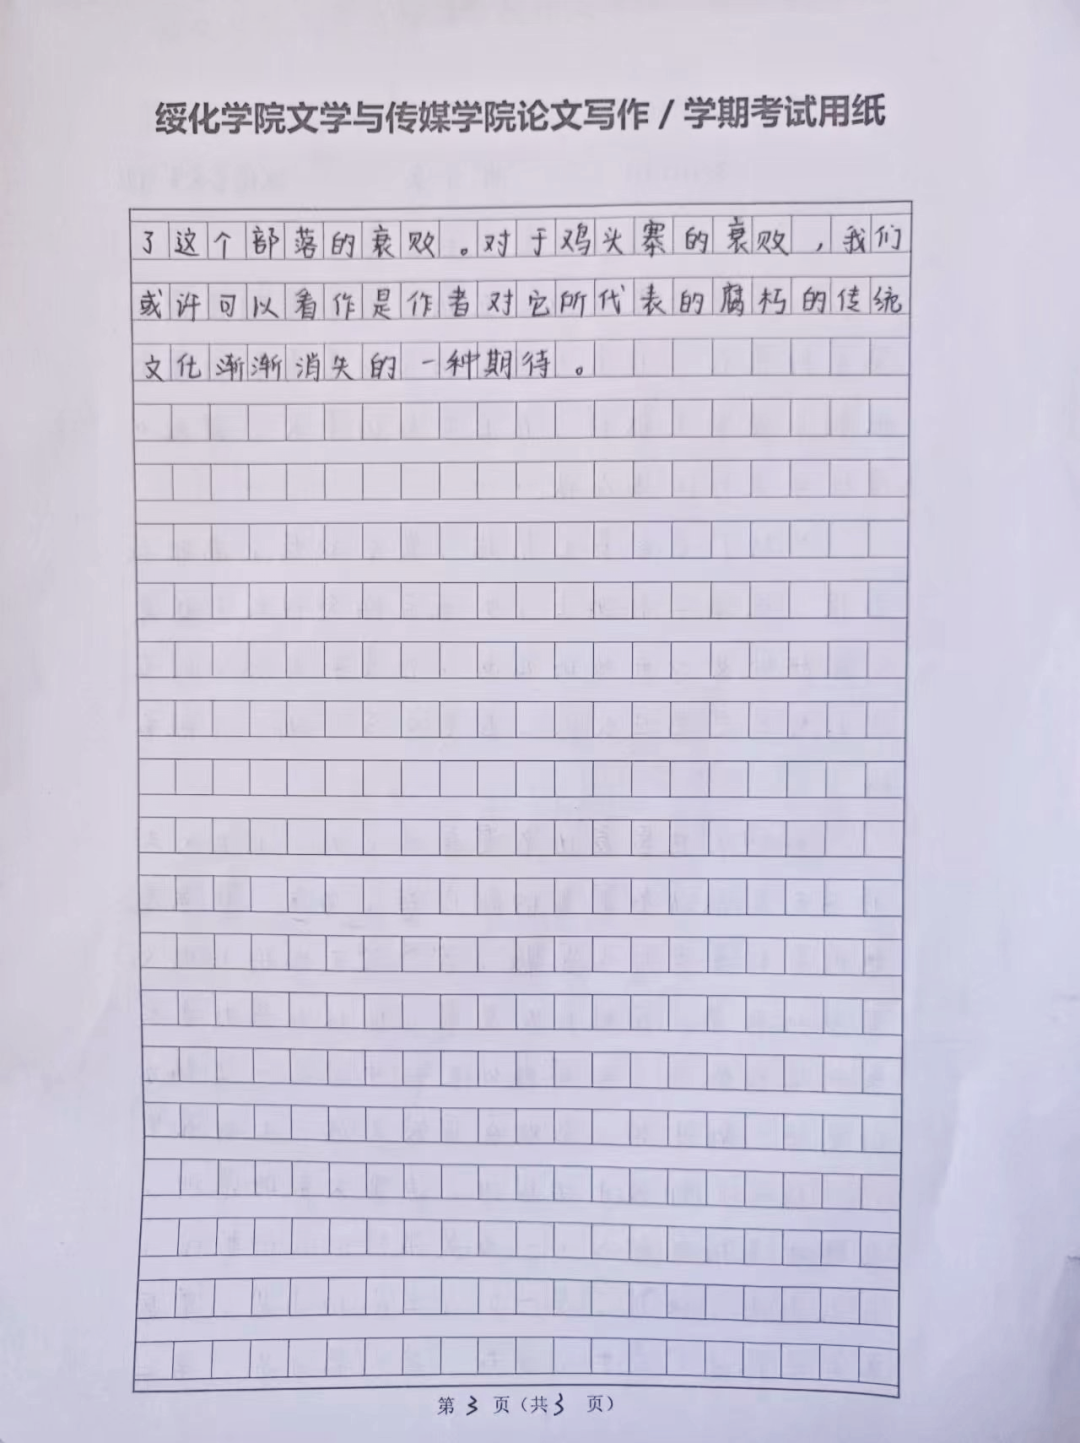 绥化学院文学与传媒学院论文写作 / 学期考试用纸
了这个部落的衰败。对于鸡头寨的衰败，我们
或许可以看作是作者对它所代表的腐朽的传统
文化渐渐消失的一种期待。
第 3 页（共 3 页）